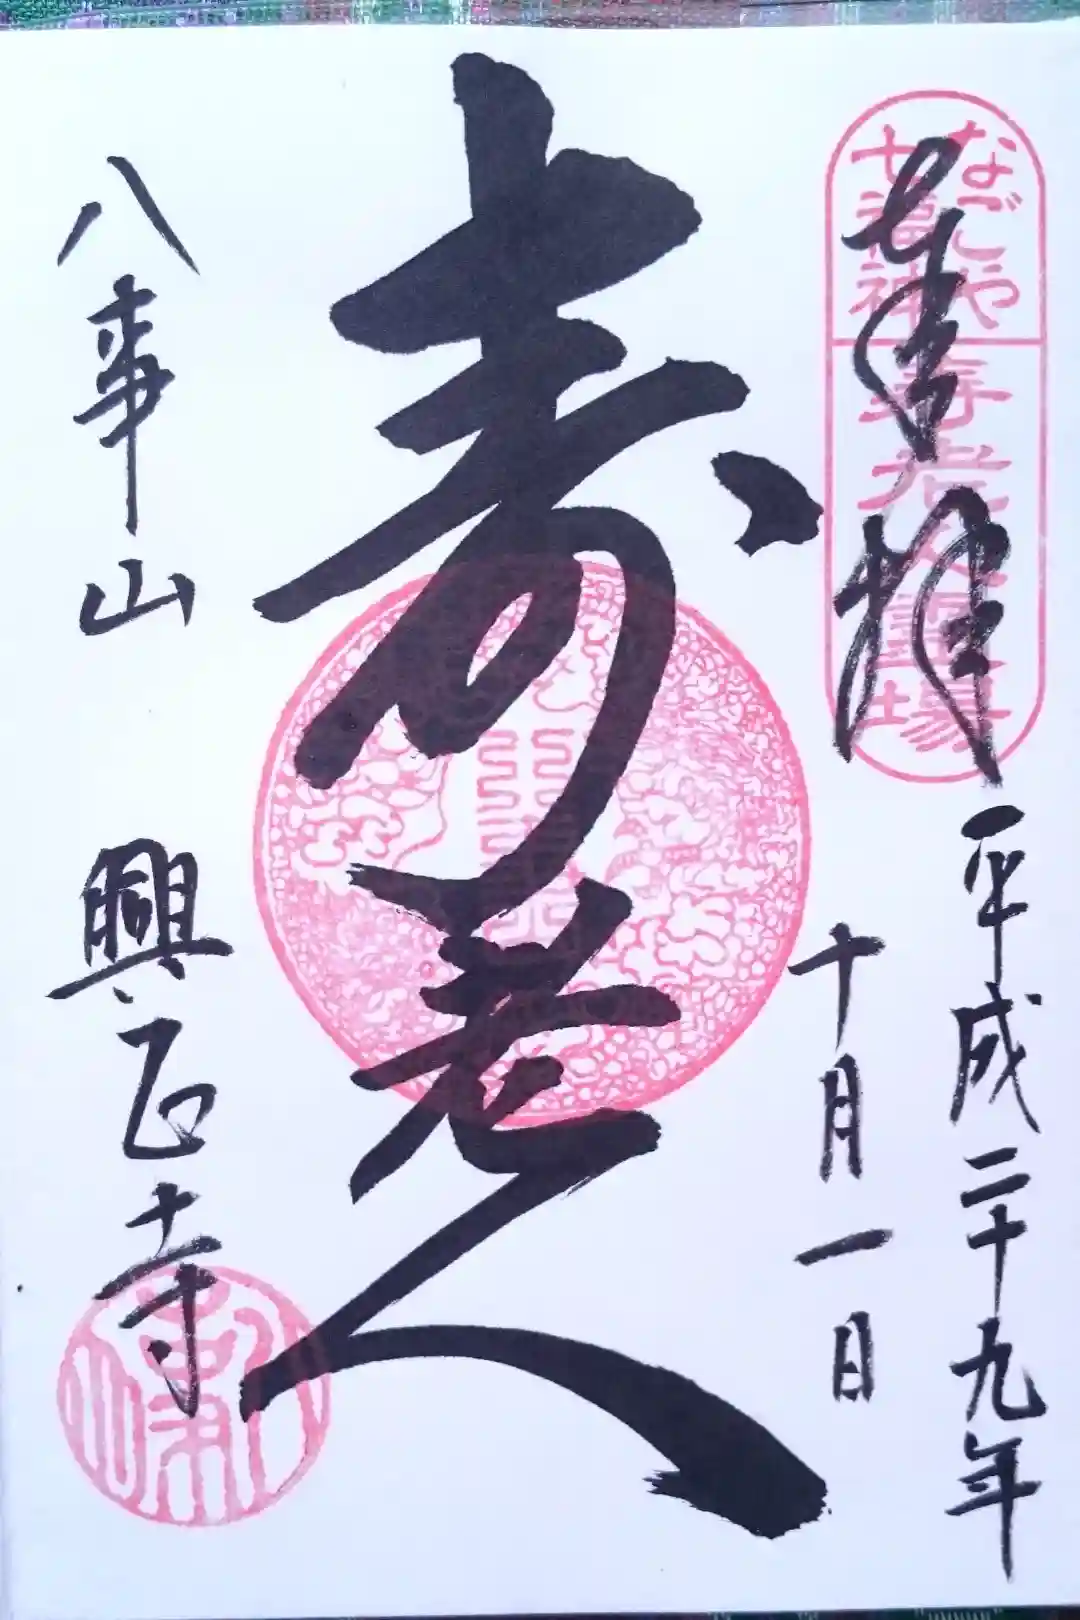 なごや
七福神
寿老人霊場
奉拝
平成二十九年
十月一日
寿老人
八事山
興正寺